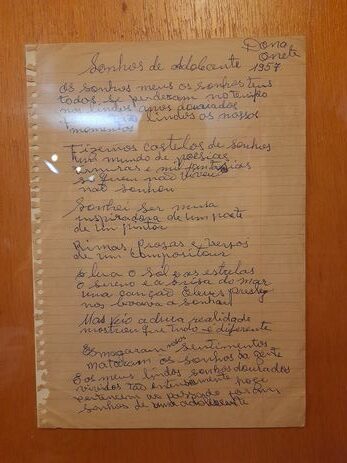 Dona
Onete
1957
Sonhos de adolecente
Os sonhos meus os sonhos teus
todos se perderam no tempo
nos lindos anos dourados
lindos os nossos
momentos
Fizemos castelos de sonhos
num mundo de poesias
ternuras e mil fantasias
só quem não viveu
não sonhou
Sonhei ser musa
inspiradora de um poeta
de um pintor
Rimas, Prosas e versos
de um compositour
A lua o sol e as estrelas
o sereno e a brisa do mar
uma canção Elvis
nos levava a sonhar
Mas veio a dura realidade
mostrou que tudo é diferente
Esmagaram nossos sentimentos
mataram os sonhos da gente
E os meus lindos sonhos dourados
vividos tão intensamente hoje
pertencem ao passado foram
sonhos de uma adolecente